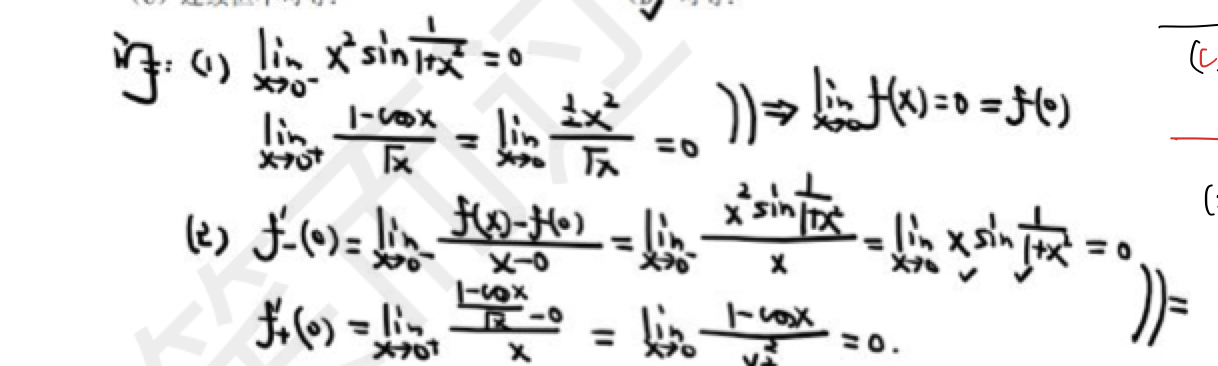 证: (1) lim x→0⁻ x² sin 1/(1+x²) = 0
lim x→0⁺ (1-cosx)/√x = lim x→0 (½x²)/√x = 0 ⇒ lim x→0 f(x) = 0 = f(0)
(2) f'₋(0) = lim x→0⁻ (f(x)-f(0))/(x-0) = lim x→0⁻ (x² sin 1/(1+x²))/x = lim x→0 x sin 1/(1+x²) = 0
f'₊(0) = lim x→0⁺ ((1-cosx)/√x - 0)/x = lim x→0 (1-cosx)/x^(3/2) = 0. =